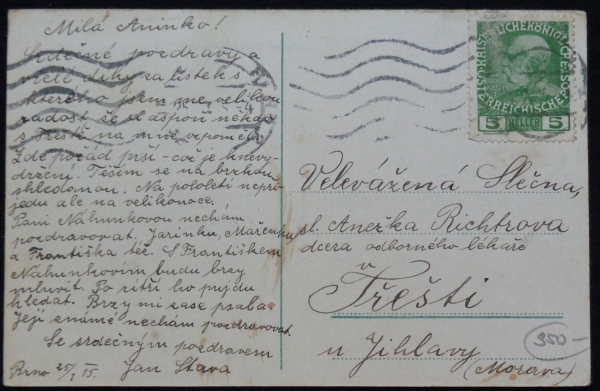 Milá Aninko!
Srdečné pozdravy a
vřelé díky za lístek s
kterého jsem měl velikou
radost že si aspoň někdo
s Třeště na mně vzpomene.
Zde pořád prší - což je k nevy-
držení. Těším se na brzkou
shledanou. Na pololetí nepři-
jedu ale na velikonoce.
Paní Náhunkovou nechám
pozdravovat. Jarinku, Mařenku
a Františka též. S Františkem
Náhunkovim budu brzy
mluvit. Po ho půjdu
hledat. Brzy mi zase psala.
Její známé nechám pozdravovat.
Se srdečným pozdravem
Brno 25/1 15. Jan Stava
Velevážená Slečna,
sl. Anežka Richtrova
dcera odborného lékaře
Třešti
u Jihlavy
(Morava)
350-
5 HELLER 5